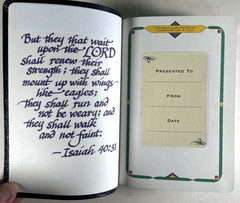 But they that wait
upon the LORD
shall renew their
strength; they shall
mount up with wings
like eagles;
they shall run and
not be weary; and
they shall walk
and not faint.
—Isaiah 40:31
PRESENTED TO
FROM
DATE